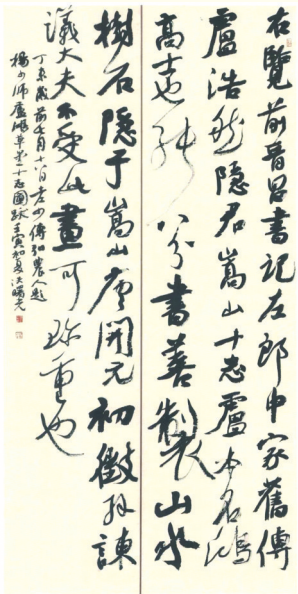 右覽前晉昌書記左郎中家舊傳
盧浩然隱君嵩山十志盧本名鴻
高士也能八分書善製山水
樹石隱于嵩山唐開元初徵拜諫
議大夫不受此畫可珍重也
丁未歲前七月十八日老少傅弘農人題
楊少師盧鴻草堂十志圖跋壬寅初夏